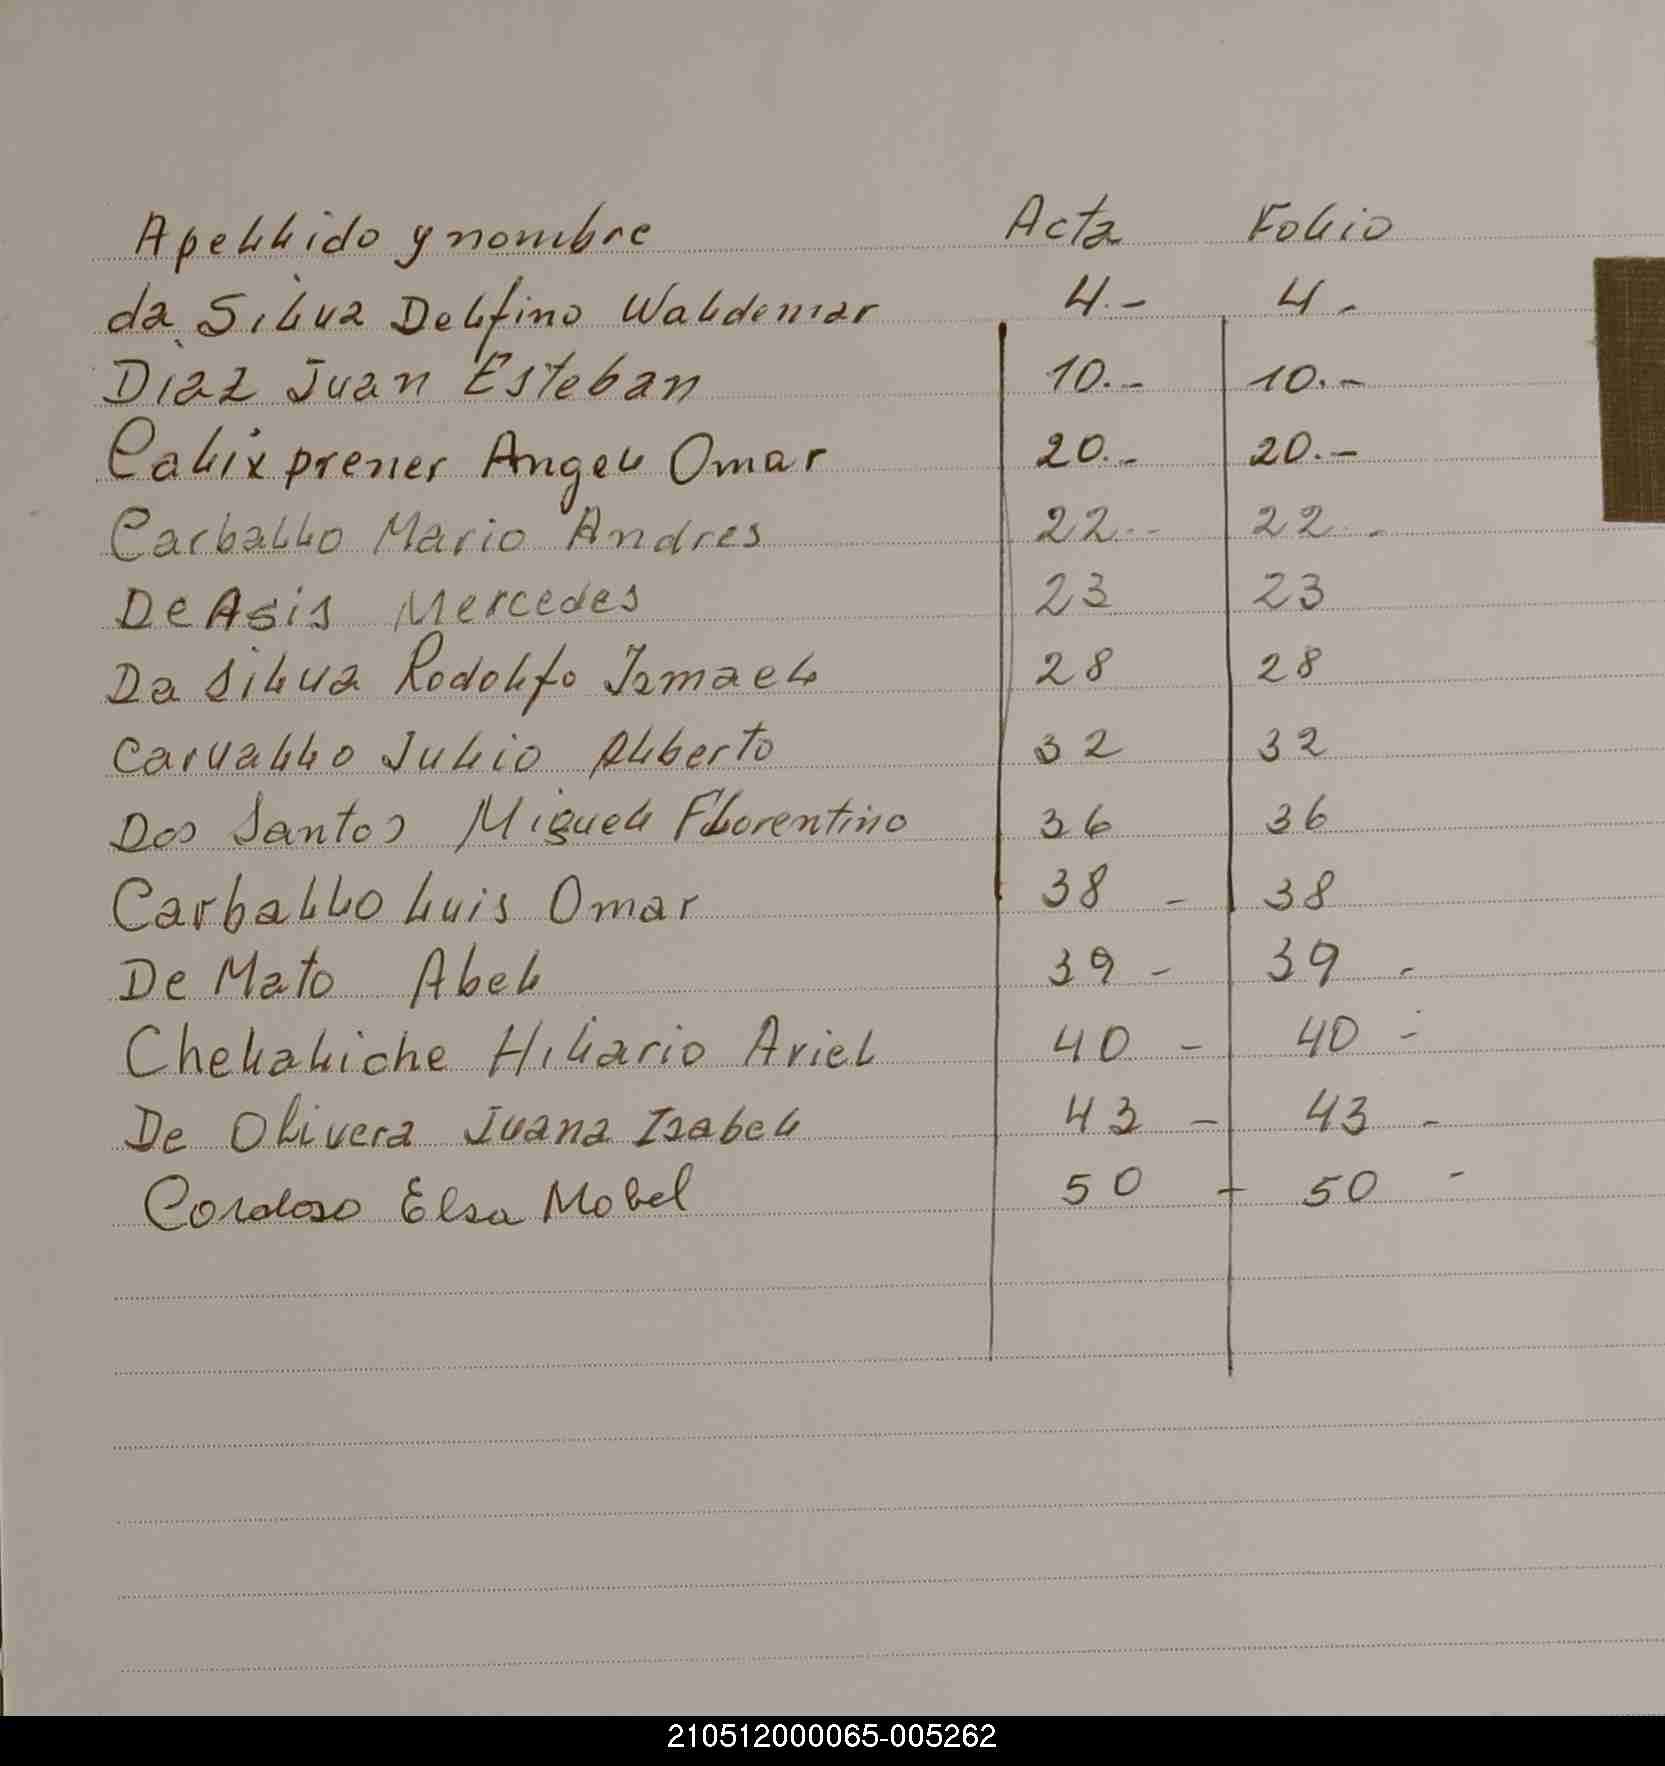 Apellido y nombre Acta Folio
da Silva Delfino Waldemar 4.- 4.-
Diaz Juan Esteban 10.- 10.-
Calix prener Angel Omar 20.- 20.-
Carballo Mario Andres 22.- 22.-
De Asis Mercedes 23 23
Da Silva Rodolfo Ismael 28 28
Carvallo Julio Alberto 32 32
Dos Santos Miguel Florentino 36 36
Carballo Luis Omar 38 - 38
De Mato Abel 39 - 39 -
Chelaliche Hilario Ariel 40 - 40 -
De Olivera Juana Isabel 43 - 43 -
Cordoso Elsa Mabel 50 - 50 -
210512000065-005262